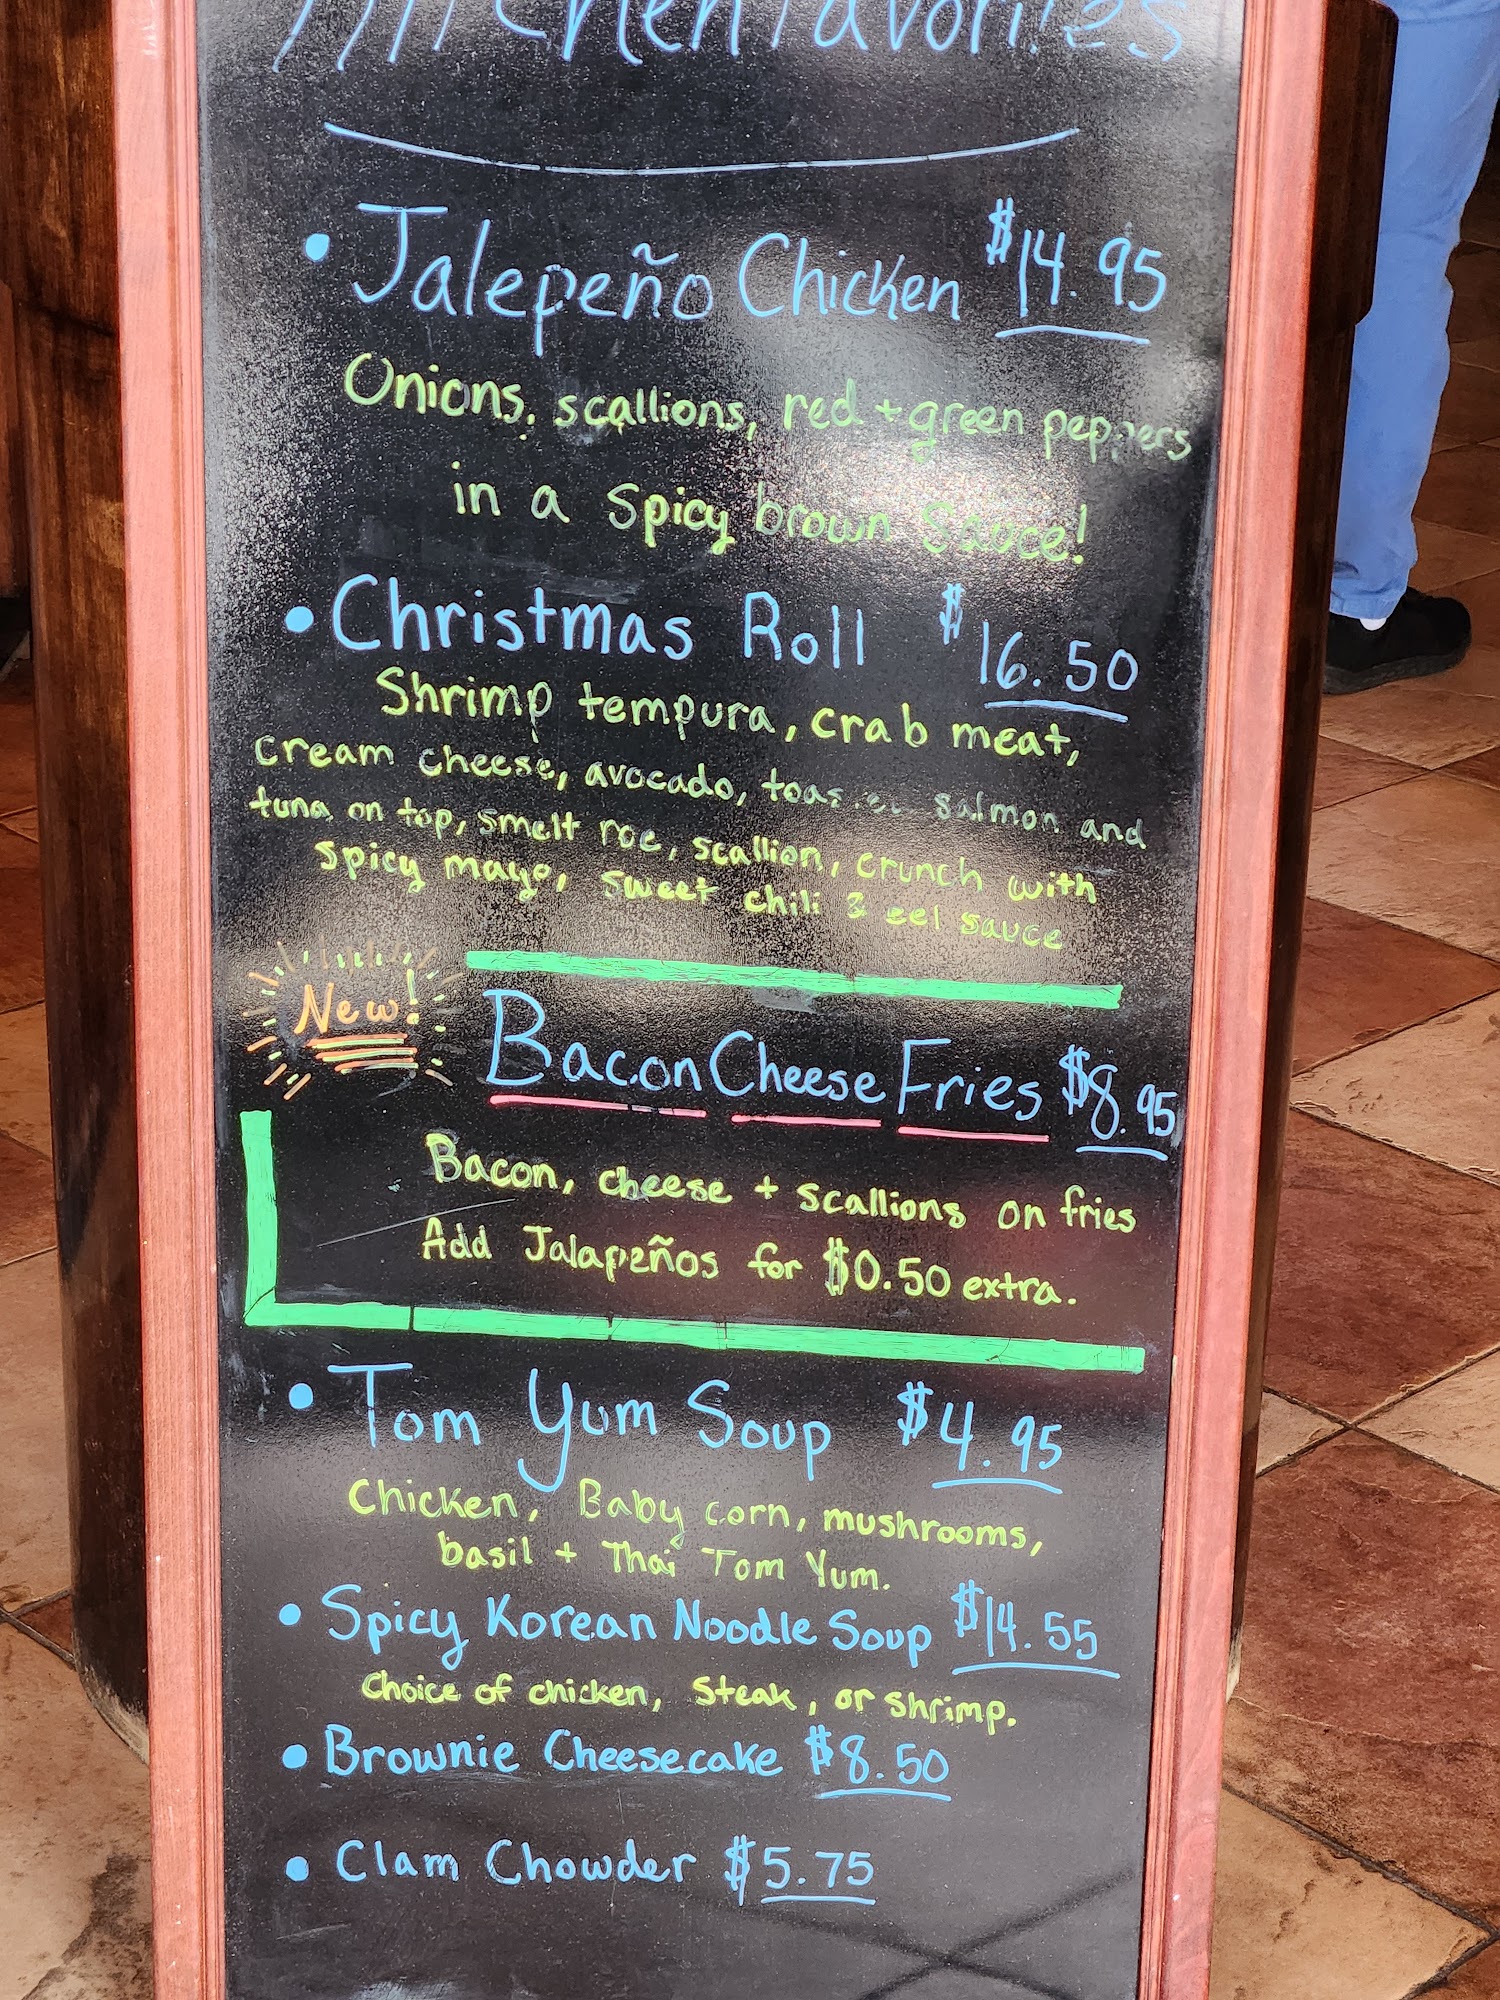 Kitchen Favorites
• Jalepeño Chicken $14.95
Onions, scallions, red + green peppers
in a spicy brown sauce!
• Christmas Roll $16.50
Shrimp tempura, crab meat,
cream cheese, avocado, toasted salmon and
tuna on top, smelt roe, scallion, crunch with
spicy mayo, sweet chili & eel sauce
New!
Bacon Cheese Fries $8.95
Bacon, cheese + scallions on fries
Add Jalapeños for $0.50 extra.
• Tom Yum Soup $4.95
Chicken, Baby corn, mushrooms,
basil + Thai Tom Yum.
• Spicy Korean Noodle Soup $14.55
Choice of chicken, steak, or shrimp.
• Brownie Cheesecake $8.50
• Clam Chowder $5.75